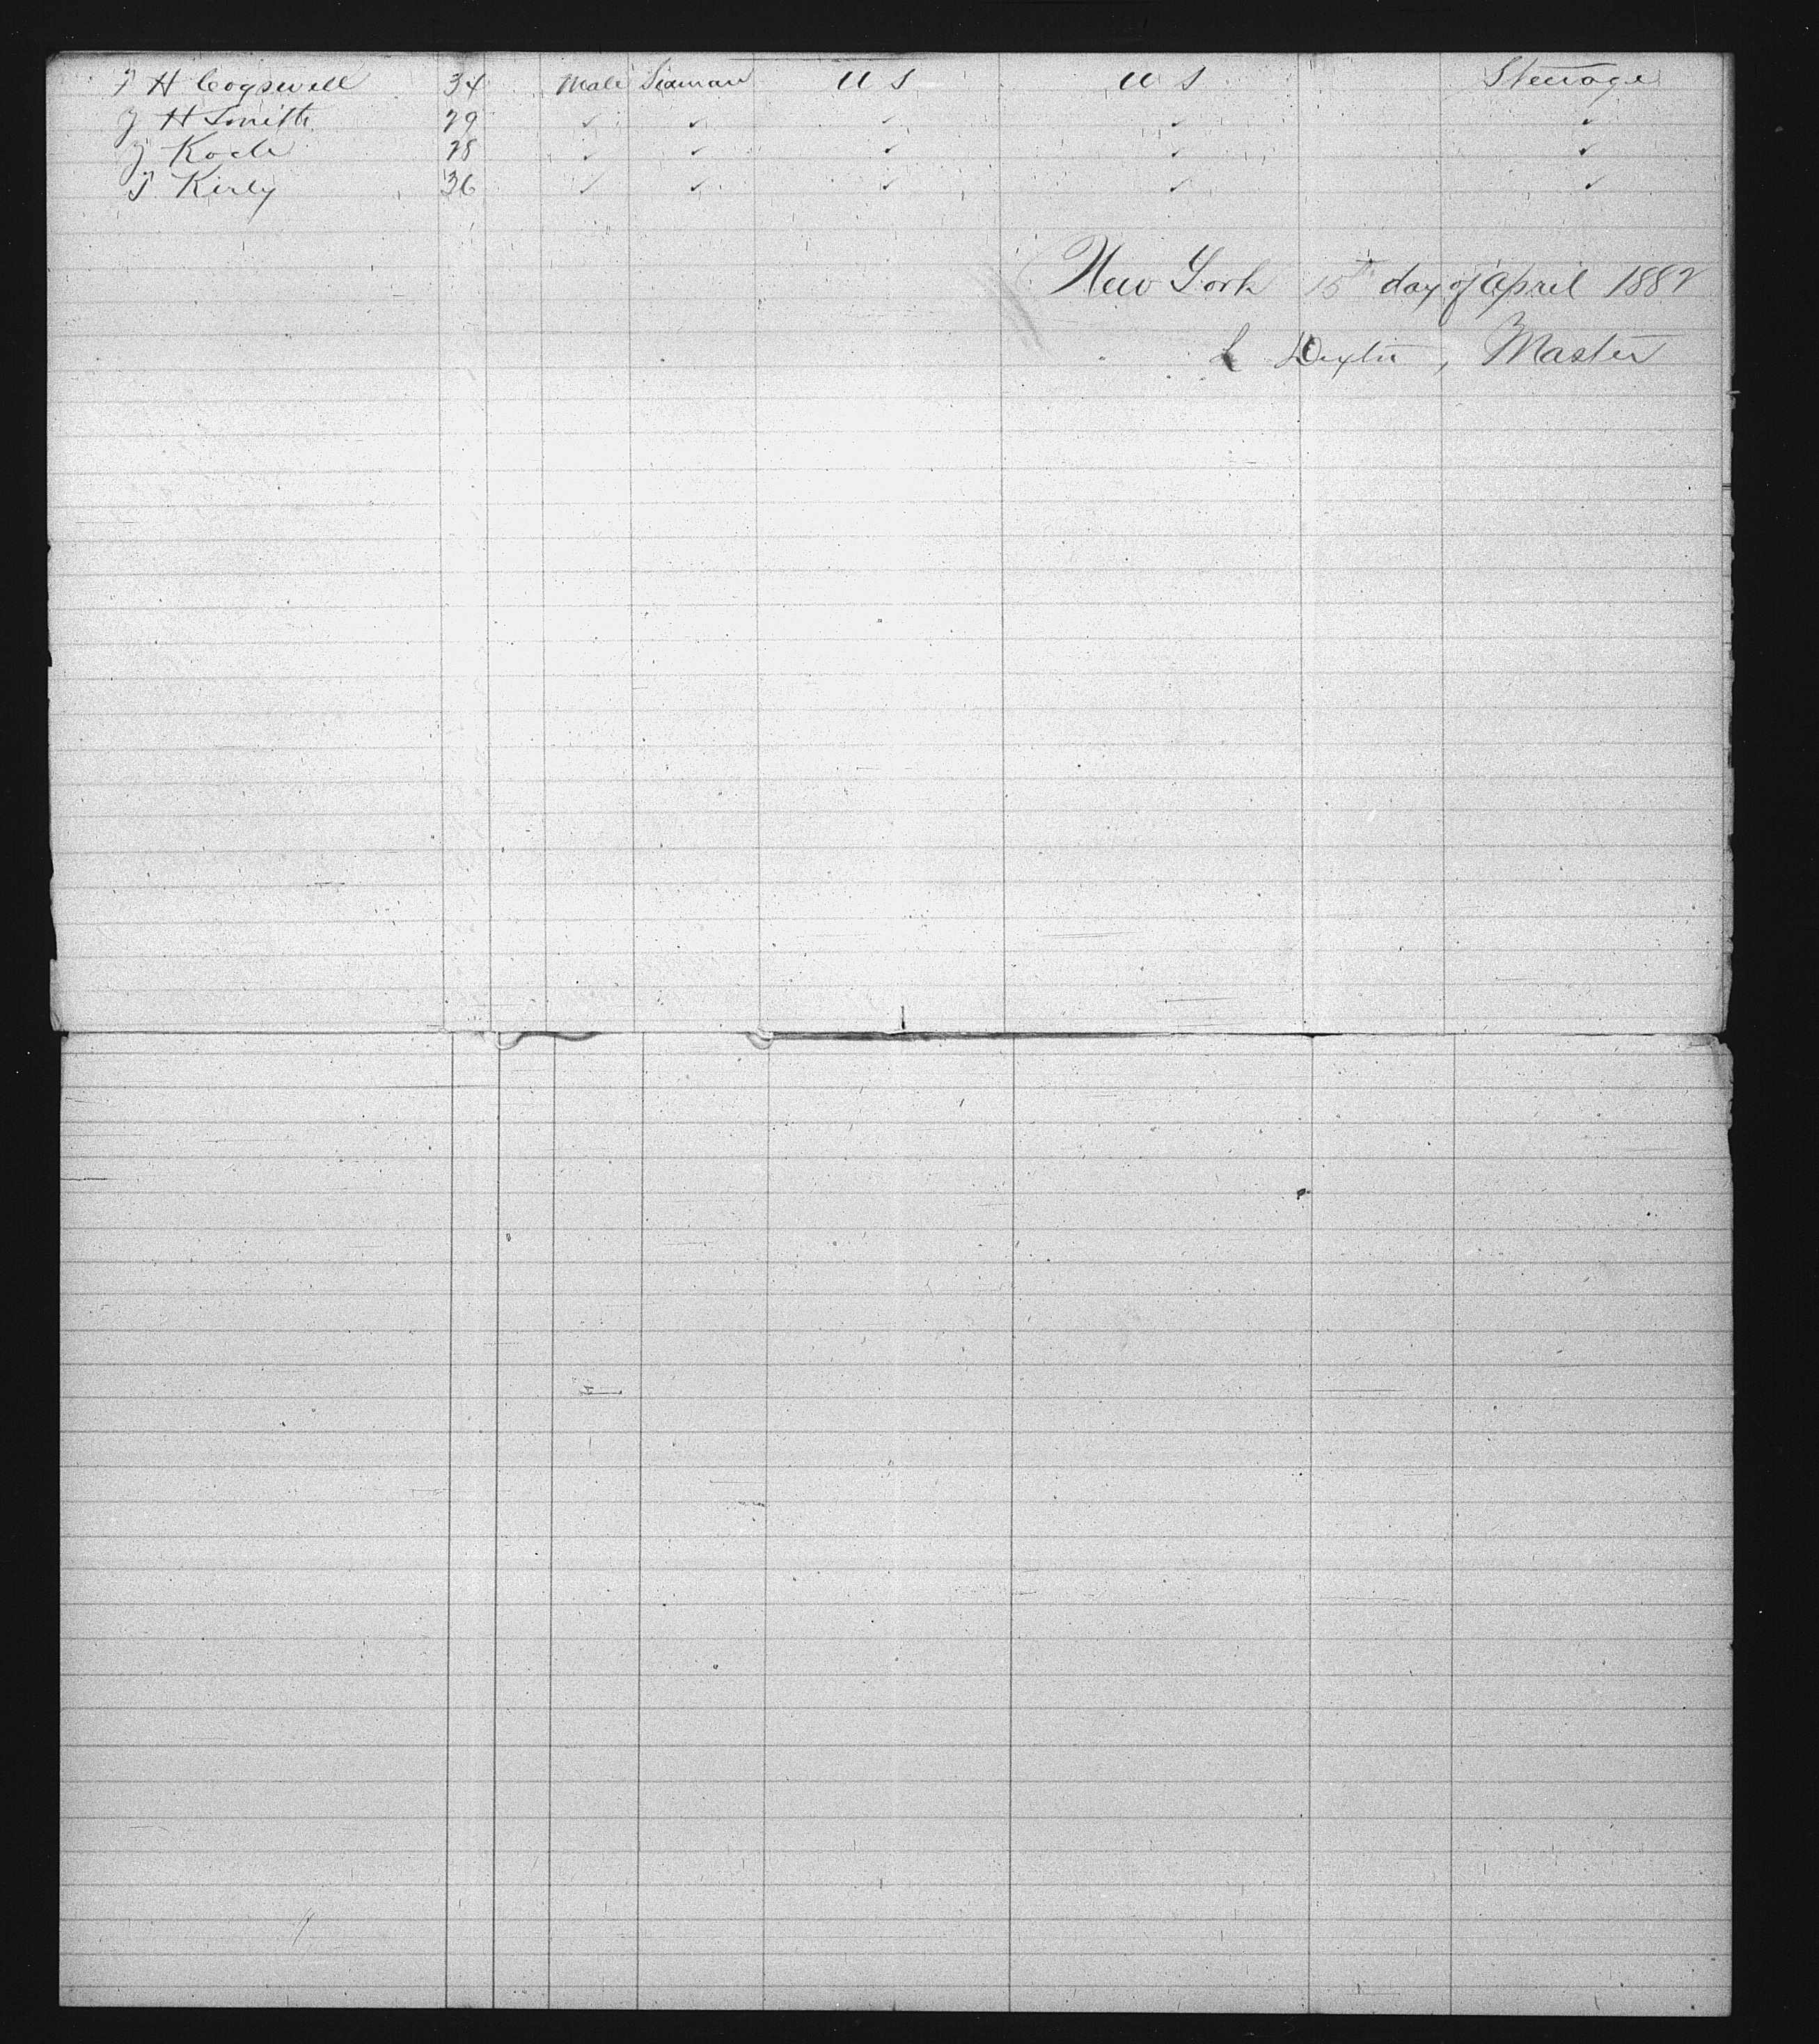 T H Cogswell 34 Male Seaman U S U S Steerage
J H Smith 29 ✓ ✓ ✓ ✓ ✓
J Koch 28 ✓ ✓ ✓ ✓ ✓
T Kirly 36 ✓ ✓ ✓ ✓ ✓
New York 15th day of April 1882
L Dexter, Master